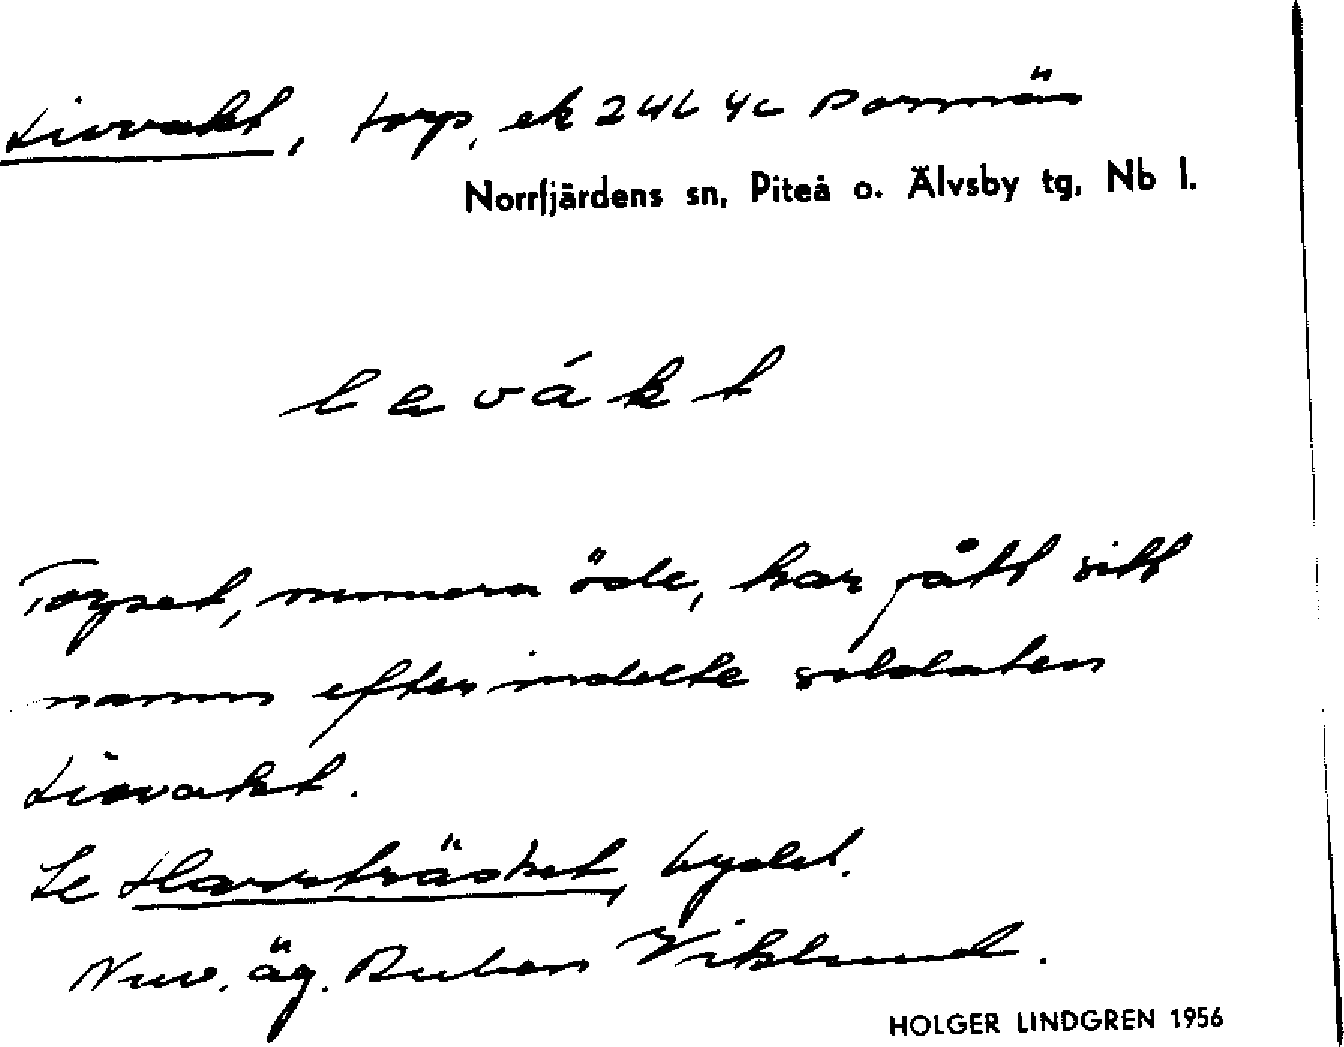 Livvakt, torp, ek 24L 4c Porsnäs
Norrfjärdens sn, Piteå o. Älvsby tg, Nb l.
levákt
Torpet, numera öde, har fått sitt
namn efter indelte soldaten
Livvakt.
Se Harrträsket, bydel.
Nuv. äg. Ruben Viklund.
HOLGER LINDGREN 1956